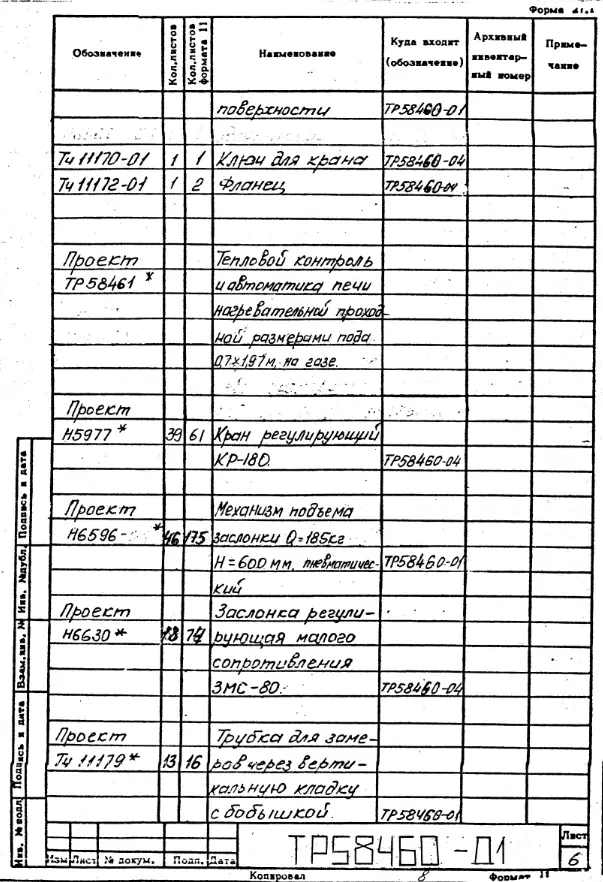 Форма 21.1
Обозначение Кол.листов Кол.листов формата 11 Наименование Куда входит (обозначение) Архивный инвентарный номер Примечание
поверхности ТР58460-01
Тч 11170-01 1 1 Ключ для крана ТР58460-04
Тч 11172-01 1 2 Фланец ТР58460-04
Проект Тепловой контроль
ТР58461 * и автоматика печи
нагревательной проход-
ной размерами пода
0,7х1,97м, на газе.
Проект
Н5977 * 39 61 Кран регулирующий
КР-180. ТР58460-04
Проект Механизм подъема
Н6596- * 46 175 заслонки Q=185кг
Н=600 мм, пневматичес- ТР58460-01
кий
Проект Заслонка регули-
Н6630 * 18 74 рующая малого
сопротивления
ЗМС-80. ТР58460-04
Проект Трубка для заме-
Тч 11179 * 13 16 ров через верти-
кальную кладку
с бобышкой. ТР58460-01
Инв. № подл. Подпись и дата Взам.инв. № Инв. №дубл. Подпись и дата
ТР58460-01 Лист
Изм Лист № докум. Подп. Дата 6
Копировал 8 Формат 11